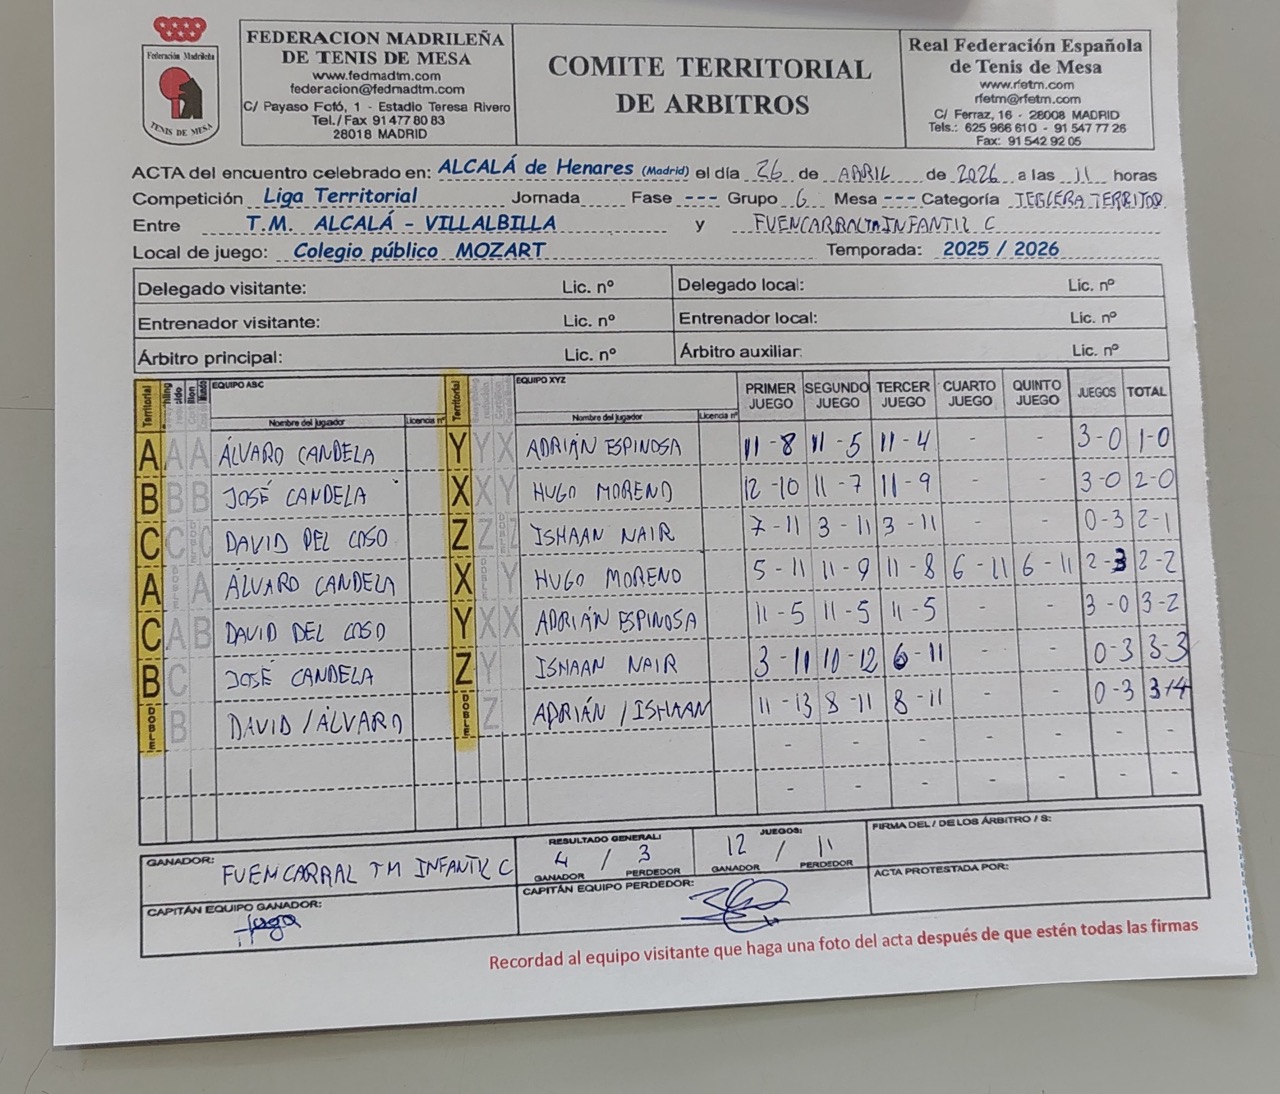 Federación Madrileña
TENIS DE MESA
FEDERACION MADRILEÑA
DE TENIS DE MESA
www.fedmadtm.com
federacion@fedmadtm.com
C/ Payaso Fofó, 1 - Estadio Teresa Rivero
Tel./Fax 91 477 80 83
28018 MADRID
COMITE TERRITORIAL
DE ARBITROS
Real Federación Española
de Tenis de Mesa
www.rfetm.com
rfetm@rfetm.com
C/ Ferraz, 16 - 28008 MADRID
Tels.: 625 966 610 - 91 547 77 26
Fax: 91 542 92 05
ACTA del encuentro celebrado en: ALCALÁ de Henares (Madrid) el día 26 de ABRIL de 2026 a las 11 horas
Competición Liga Territorial Jornada Fase --- Grupo 6 Mesa --- Categoría TERCERA TERRITOR.
Entre T.M. ALCALÁ - VILLALBILLA y FUENCARRAL TM INFANTIL C
Local de juego: Colegio público MOZART Temporada: 2025 / 2026
Delegado visitante: Lic. nº Delegado local: Lic. nº
Entrenador visitante: Lic. nº Entrenador local: Lic. nº
Árbitro principal: Lic. nº Árbitro auxiliar: Lic. nº
Territorial EQUIPO ABC Territorial EQUIPO XYZ PRIMER JUEGO SEGUNDO JUEGO TERCER JUEGO CUARTO JUEGO QUINTO JUEGO JUEGOS TOTAL
Nombre del jugador Licencia nº Nombre del jugador Licencia nº
A A A ÁLVARO CANDELA Y Y X ADRIÁN ESPINOSA 11 - 8 11 - 5 11 - 4 - - 3-0 1-0
B B B JOSÉ CANDELA X X Y HUGO MORENO 12 - 10 11 - 7 11 - 9 - - 3-0 2-0
C C C DAVID DEL COSO Z Z Z ISHAAN NAIR 7 - 11 3 - 11 3 - 11 - - 0-3 2-1
A DOBLE A ÁLVARO CANDELA X DOBLE Y HUGO MORENO 5 - 11 11 - 9 11 - 8 6 - 11 6 - 11 2-3 2-2
C A B DAVID DEL COSO Y X X ADRIÁN ESPINOSA 11 - 5 11 - 5 11 - 5 - - 3-0 3-2
B C JOSÉ CANDELA Z Y ISHAAN NAIR 3 - 11 10 - 12 6 - 11 - - 0-3 3-3
DOBLE B DAVID / ÁLVARO DOBLE Z ADRIÁN / ISHAAN 11 - 13 8 - 11 8 - 11 - - 0-3 3-4
- - - - - - -
- - - - - - -
GANADOR: FUENCARRAL TM INFANTIL C
RESULTADO GENERAL:
4 / 3
GANADOR PERDEDOR
JUEGOS:
12 / 11
GANADOR PERDEDOR
FIRMA DEL / DE LOS ÁRBITRO / S:
CAPITÁN EQUIPO GANADOR:
CAPITÁN EQUIPO PERDEDOR:
ACTA PROTESTADA POR:
Recordad al equipo visitante que haga una foto del acta después de que estén todas las firmas